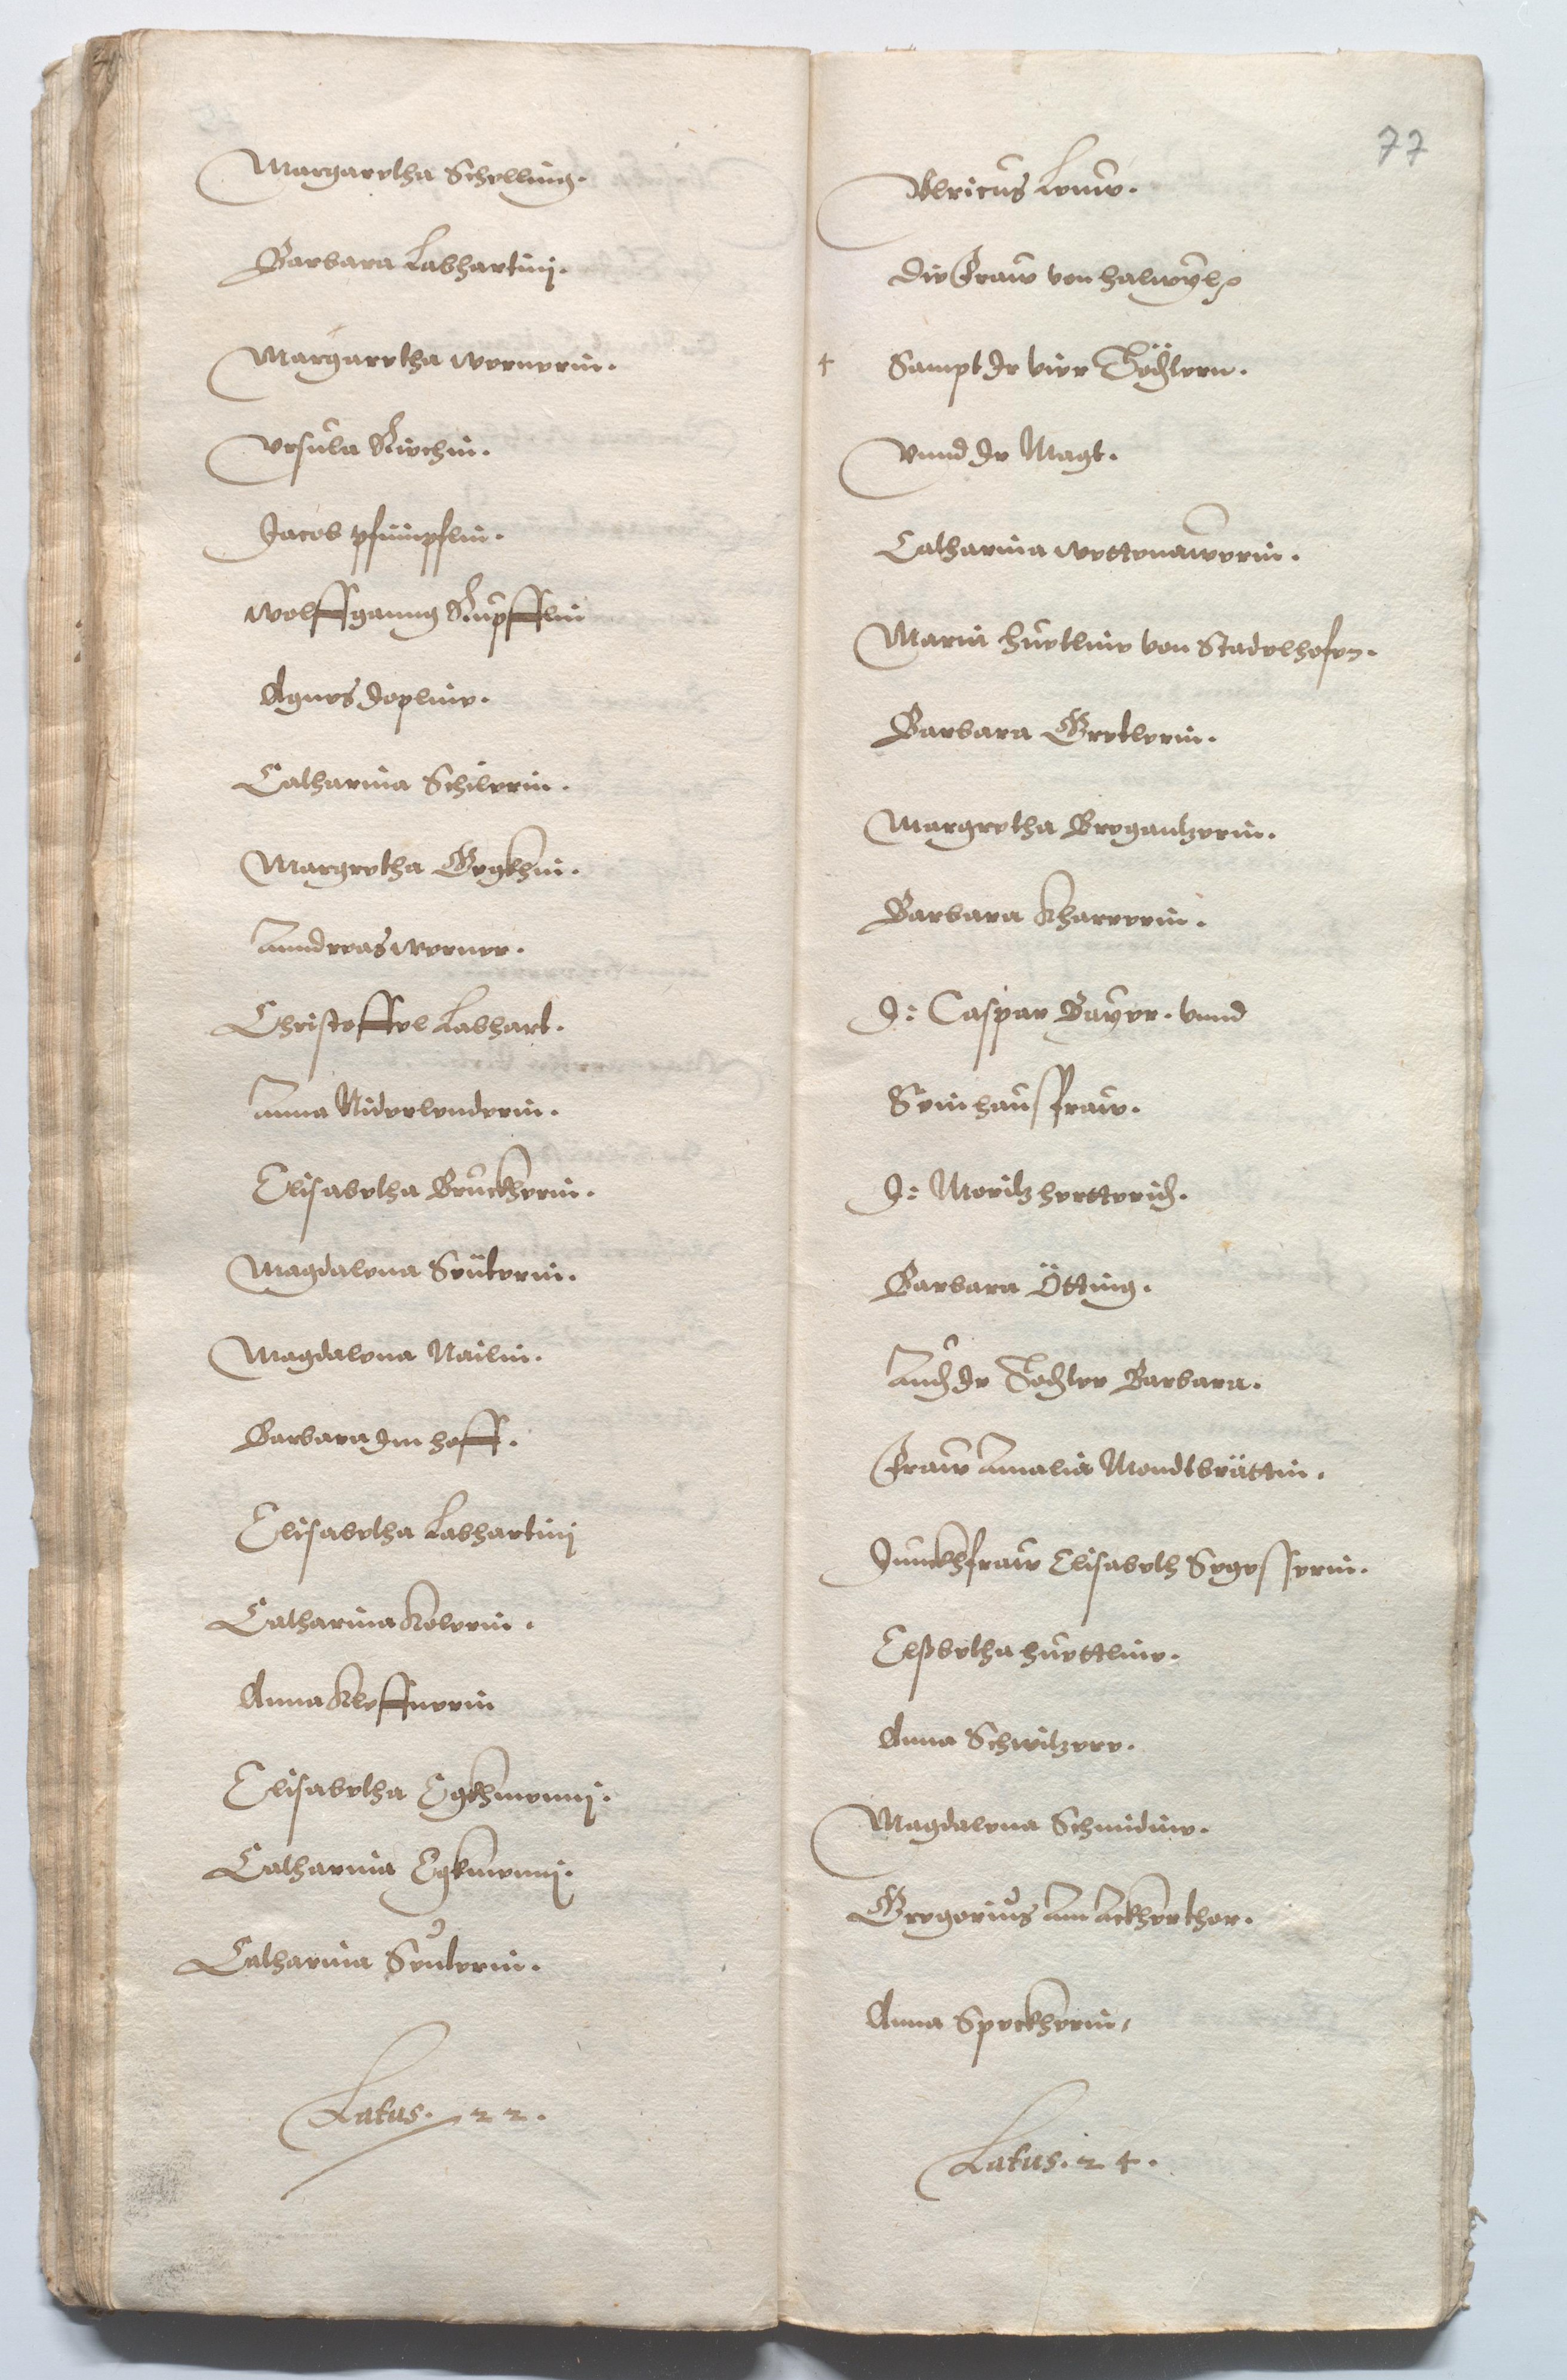 Margaretha Schelling.
Barbara Labhartinj.
Margaretha wernerin.
Vrsula Kirchin.
Jacob pfimpflin.
wolffganng Kupfflin
Agnes Jopline.
Catharina Schilerin.
Margretha Gegkhin.
Anndreas werner.
Christoffel Labhart.
Anna Niderlenderin.
Elisabetha Bruckherin.
Magdalena Seüterin.
Magdalena Nailin.
Barbara Im hoff.
Elisabetha Labhartinj
Catharina Kolerin.
Anna Kleffnerin
Elisabetha Egkhmennj.
Catharina Egkmennj.
Catharina Seuterin.
Latus. 22.
77
Vlricus Lenw.
die Fraw von halwÿl
4 Sampt Ir vier Töchtern.
Vnnd Ir Magt.
Catharina wettenawerin.
Maria hurtline von Stadelhofen.
Barbara Gretlerin.
Margretha Bregantzerin.
Barbara Kharrerin.
J: Caspar Gaÿer. vnnd
Sein haußfraw.
J: Moritz hertterich.
Barbara Ötting.
Auch Ir Tochter Barbara.
Fraw Amalia Mondtbrättin.
Junckhfraw Elisabeth Segesserin.
Elßbetha hurttline.
Anna Schwitzere.
Magdalena Schmidine.
Gregorius Am Ackherthor.
Anna Speckherin.
Latus. 24.